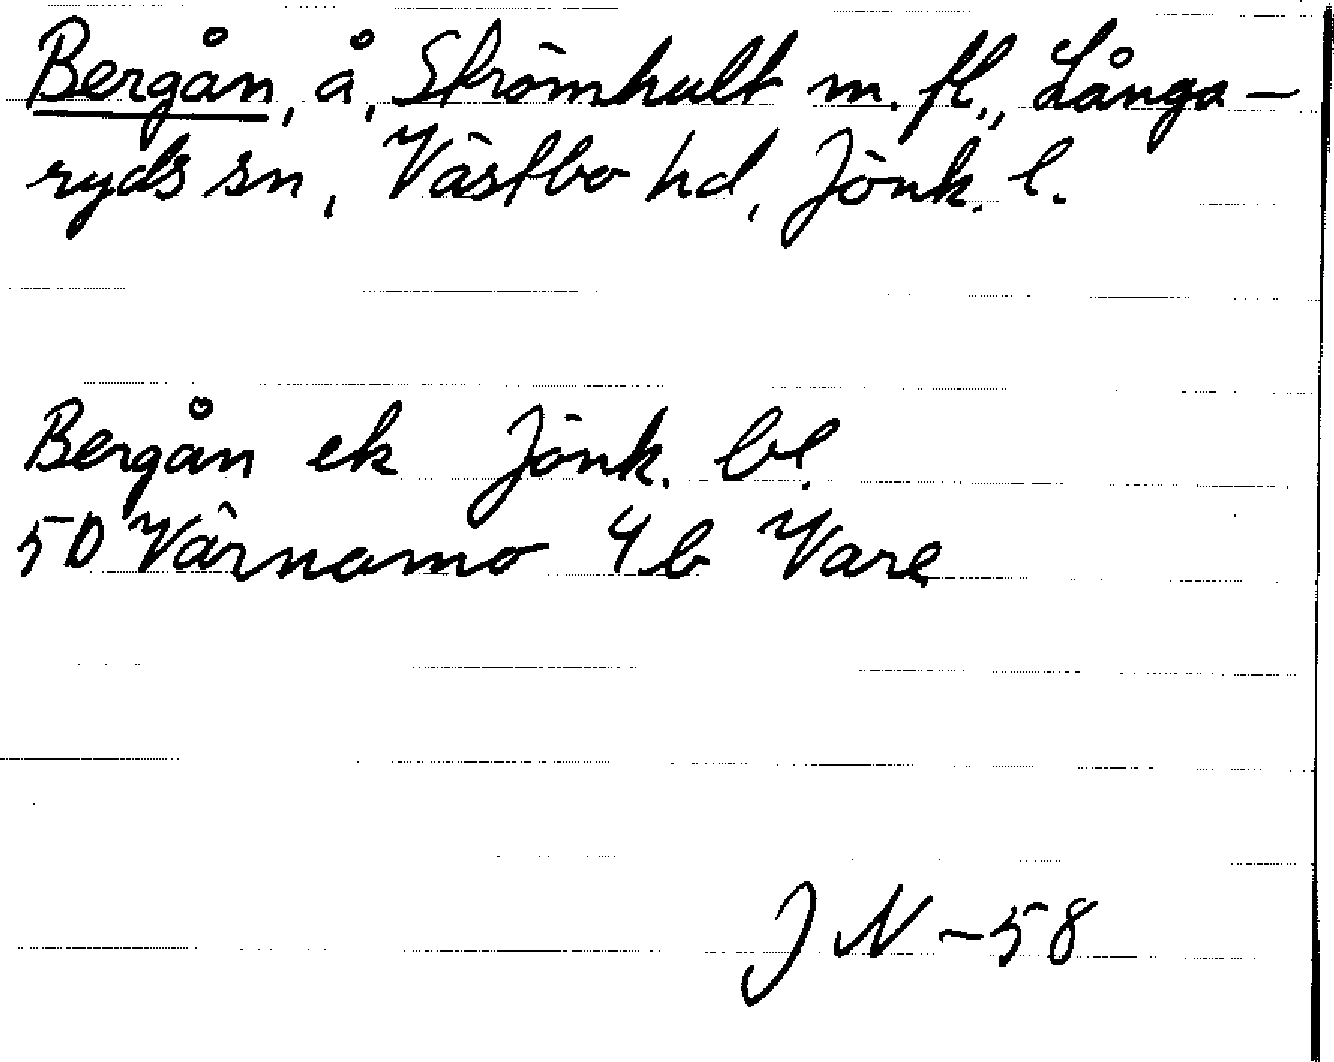 Bergån, å, Strömhult m. fl., Långa-
ryds sn, Västbo hd, Jönk. l.
Bergån ek Jönk. bl.
5D Värnamo 4b Vare
J N -58